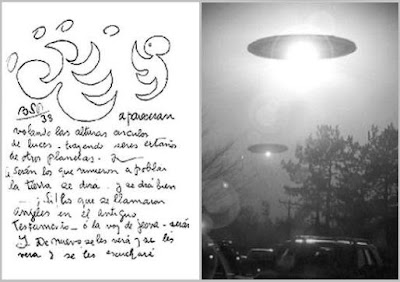 BSP
38
apareceran
volando las alturas circulos
de luces - trayendo seres estraños
de otros planetas -
¡ Serán los que vinieron a poblar
la tierra se dira - y se dirá bien
... ¡ Si! los que se llamaron
angeles en el antiguo
Testamento - ó la voz de Jeova - serán
De nuevo se les verá y se les
vera y se les escuchará